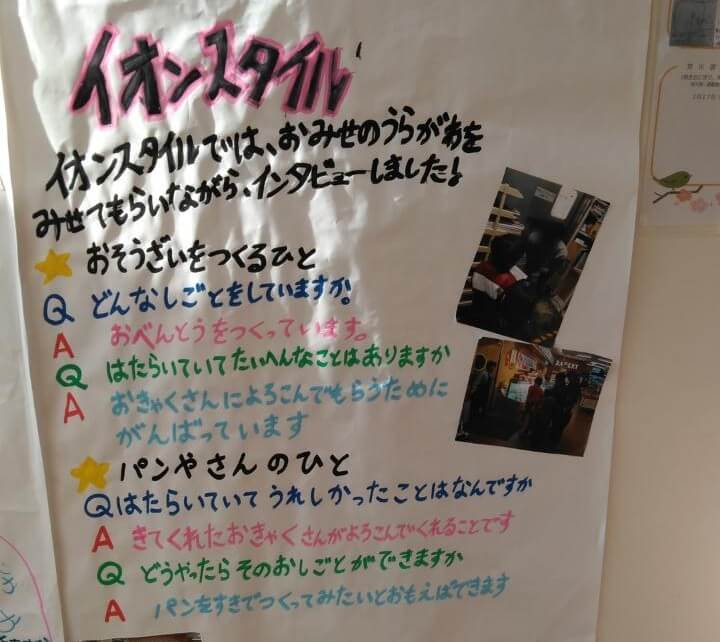 イオンスタイル
イオンスタイルでは、おみせのうらがわを
みせてもらいながら、インタビューしました!
おそうざいをつくるひと
Q どんなしごとをしていますか。
A おべんとうをつくっています。
Q はたらいていてたいへんなことはありますか
A おきゃくさんによろこんでもらうために
がんばっています
パンやさんのひと
Q はたらいていてうれしかったことはなんですか
A きてくれたおきゃくさんがよろこんでくれることです
Q どうやったらそのおしごとができますか
A パンをすきでつくってみたいとおもえばできます
BAKERY